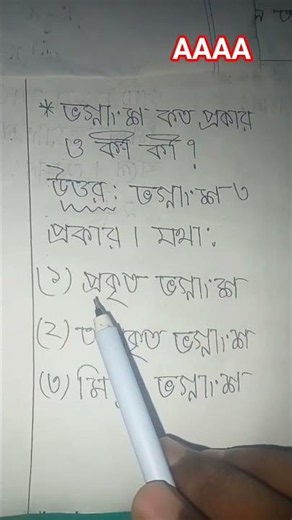 AAAA
* ভগ্নাংশ কত প্রকার
ও কী কী ?
উত্তর: ভগ্নাংশ ৩
প্রকার । যথা:
(১) প্রকৃত ভগ্নাংশ
(২) ভগ্নাংশ
(৩) ভগ্নাংশ